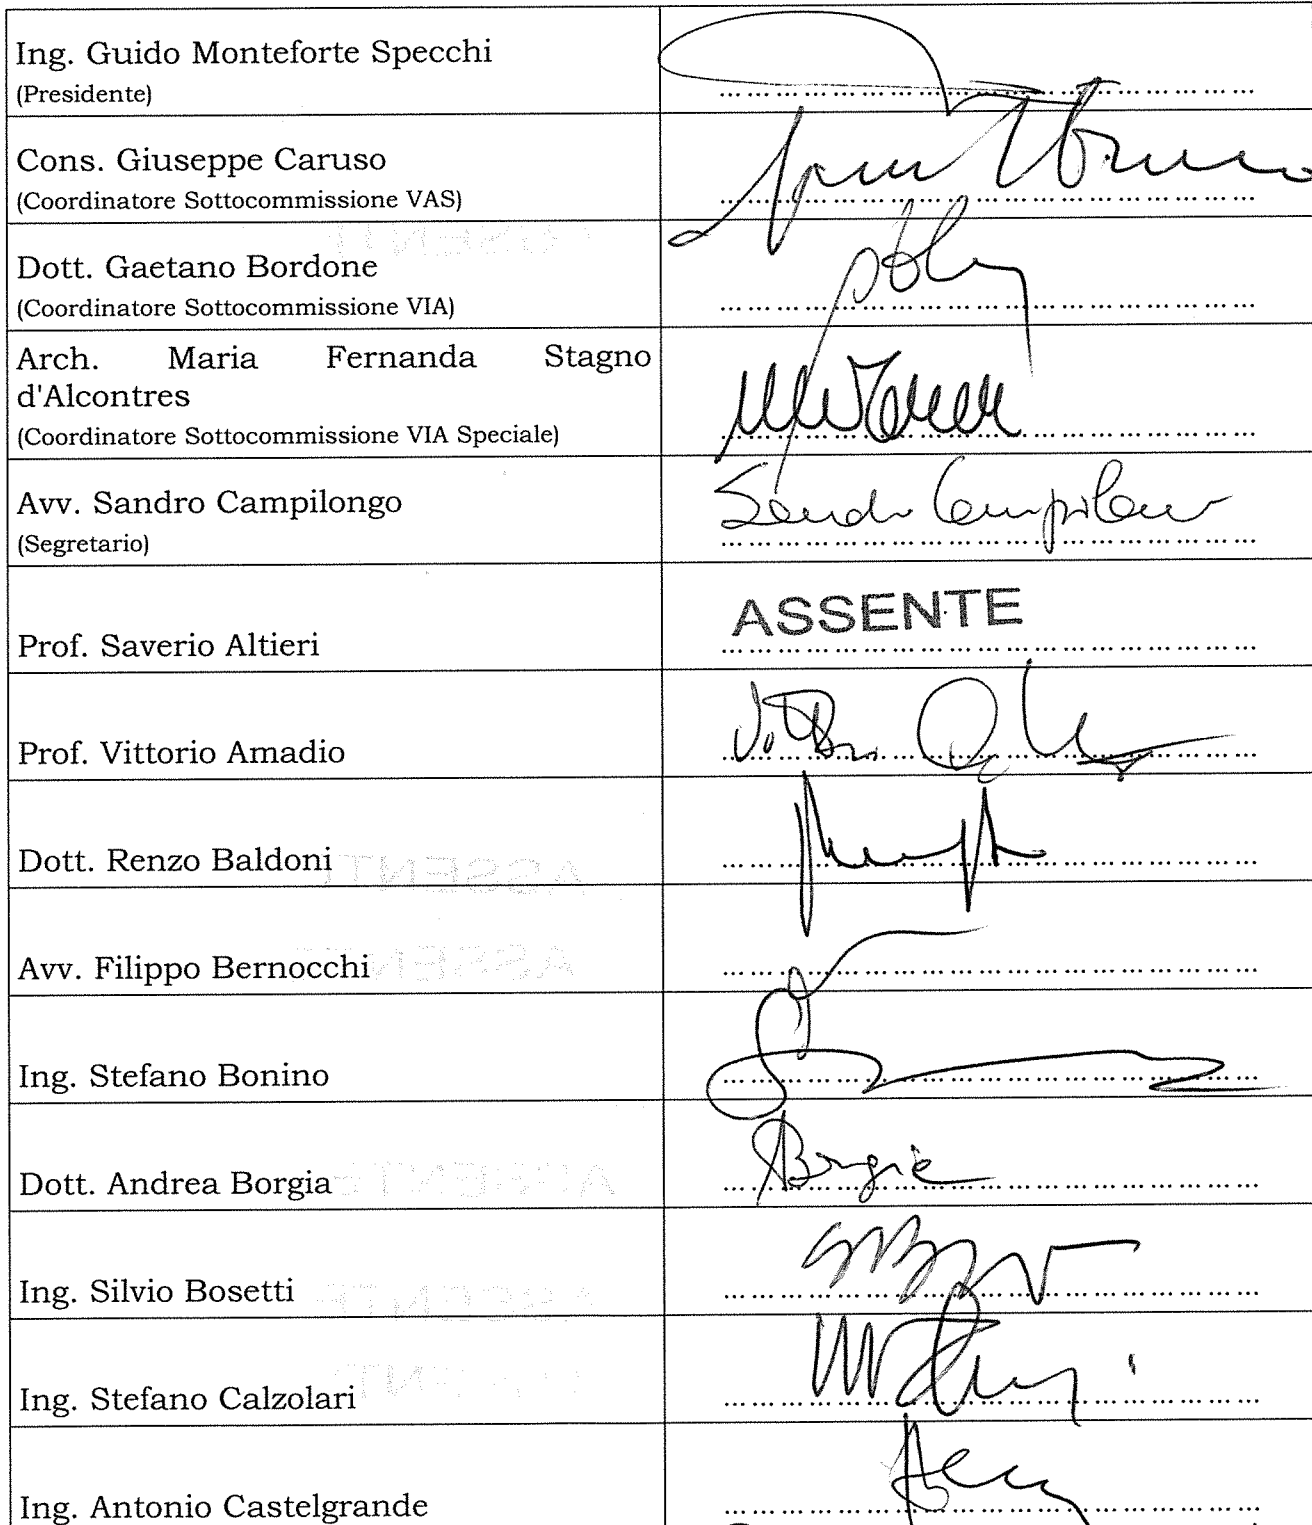 Ing. Guido Monteforte Specchi
(Presidente)
Cons. Giuseppe Caruso
(Coordinatore Sottocommissione VAS)
Dott. Gaetano Bordone
(Coordinatore Sottocommissione VIA)
Arch. Maria Fernanda Stagno
d'Alcontres
(Coordinatore Sottocommissione VIA Speciale)
Avv. Sandro Campilongo
(Segretario)
Prof. Saverio Altieri
ASSENTE
Prof. Vittorio Amadio
Dott. Renzo Baldoni
Avv. Filippo Bernocchi
Ing. Stefano Bonino
Dott. Andrea Borgia
Borgia
Ing. Silvio Bosetti
Ing. Stefano Calzolari
Ing. Antonio Castelgrande